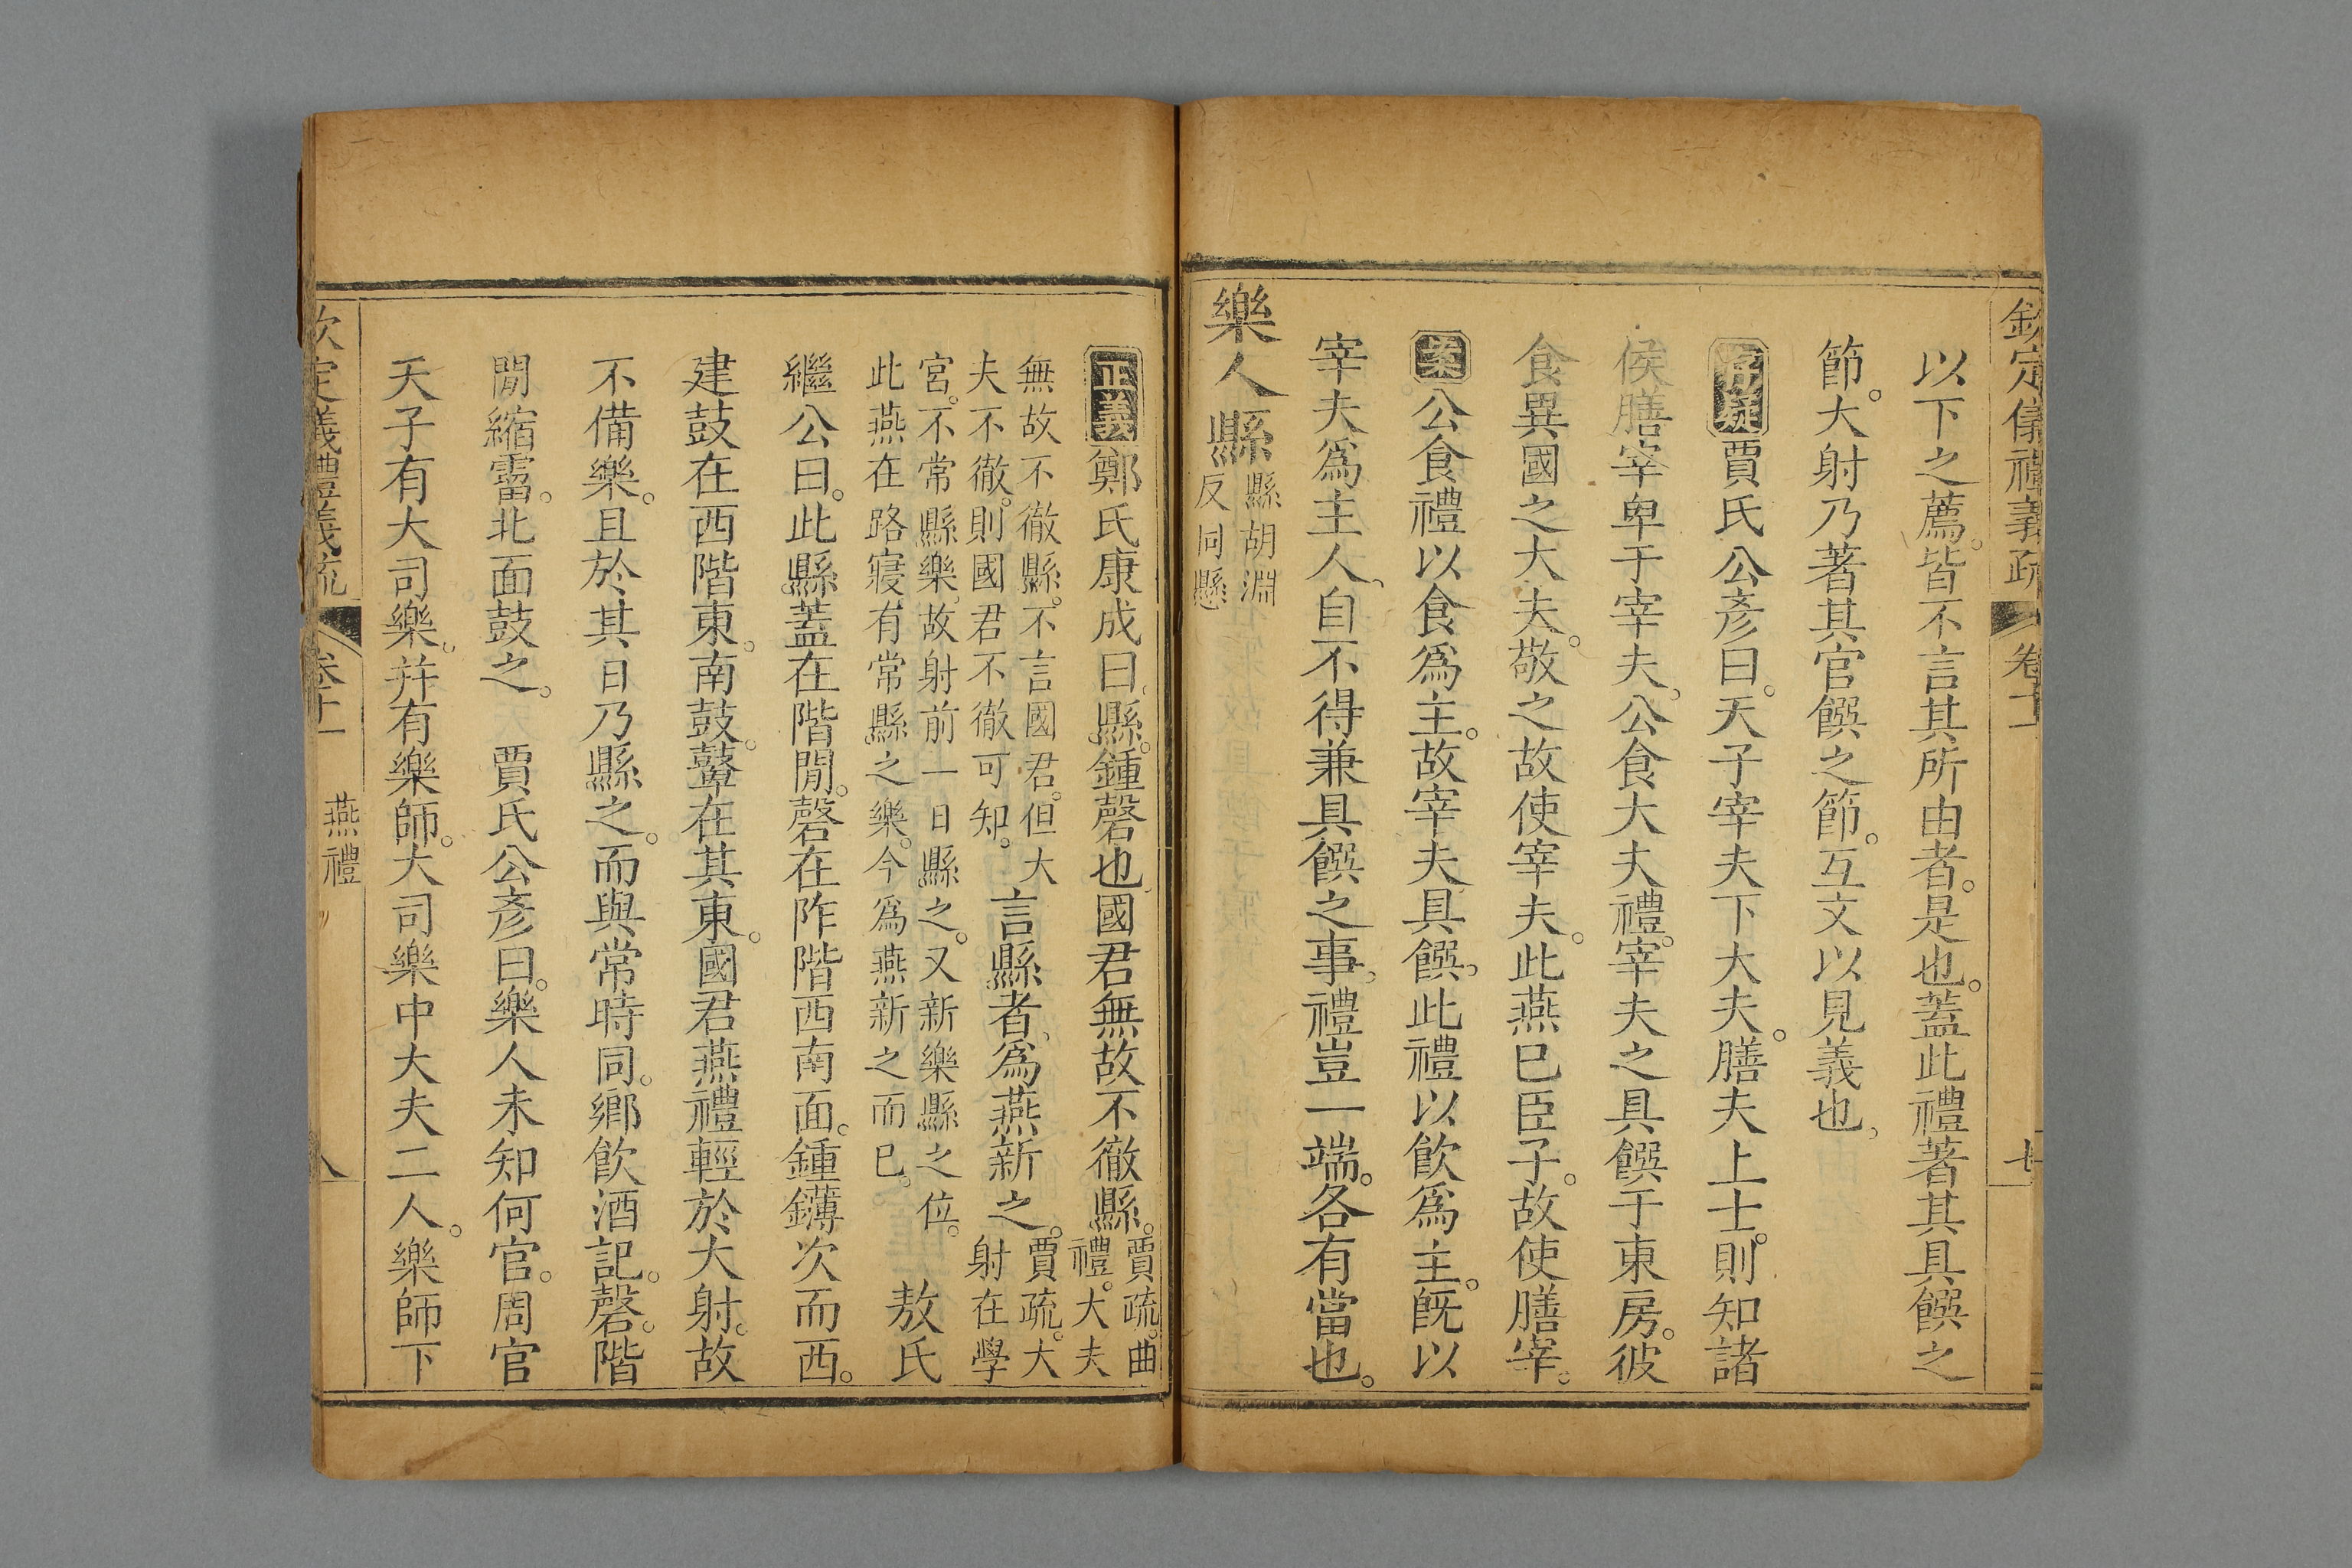 欽定儀禮義疏 卷十一 七
以下之薦。皆不言其所由者。是也。蓋此禮著其具饌之
節。大射乃著其官饌之節。互文以見義也。
存疑 賈氏公彥曰。天子宰夫下大夫。膳夫上士。則知諸
侯膳宰卑于宰夫。公食大夫禮。宰夫之具饌于東房。彼
食異國之大夫。敬之故使宰夫。此燕已臣子。故使膳宰。
案 公食禮以食為主。故宰夫具饌。此禮以飲為主。旣以
宰夫為主人。自不得兼具饌之事。禮豈一端。各有當也。
樂人縣 縣胡淵
反同懸
正義 鄭氏康成曰。縣。鍾磬也。國君無故不徹縣。賈疏。曲
禮。大夫
無故不徹縣。不言國君。但大
夫不徹。則國君不徹可知。言縣者。為燕新之。賈疏。大
射在學
宮。不常縣樂。故射前一日縣之。又新樂縣之位。
此燕在路寢。有常縣之樂。今為燕新之而已。 敖氏
繼公曰。此縣。蓋在階閒。磬在阼階西南面。鍾鑮次而西。
建鼓在西階東。南鼓。鼙在其東。國君燕禮輕於大射。故
不備樂。且於其日乃縣之。而與常時同。鄉飲酒記。磬。階
閒縮霤。北面鼓之。 賈氏公彥曰。樂人未知何官。周官
天子有大司樂。幷有樂師。大司樂中大夫二人。樂師下
欽定儀禮義疏 卷十一 燕禮 八